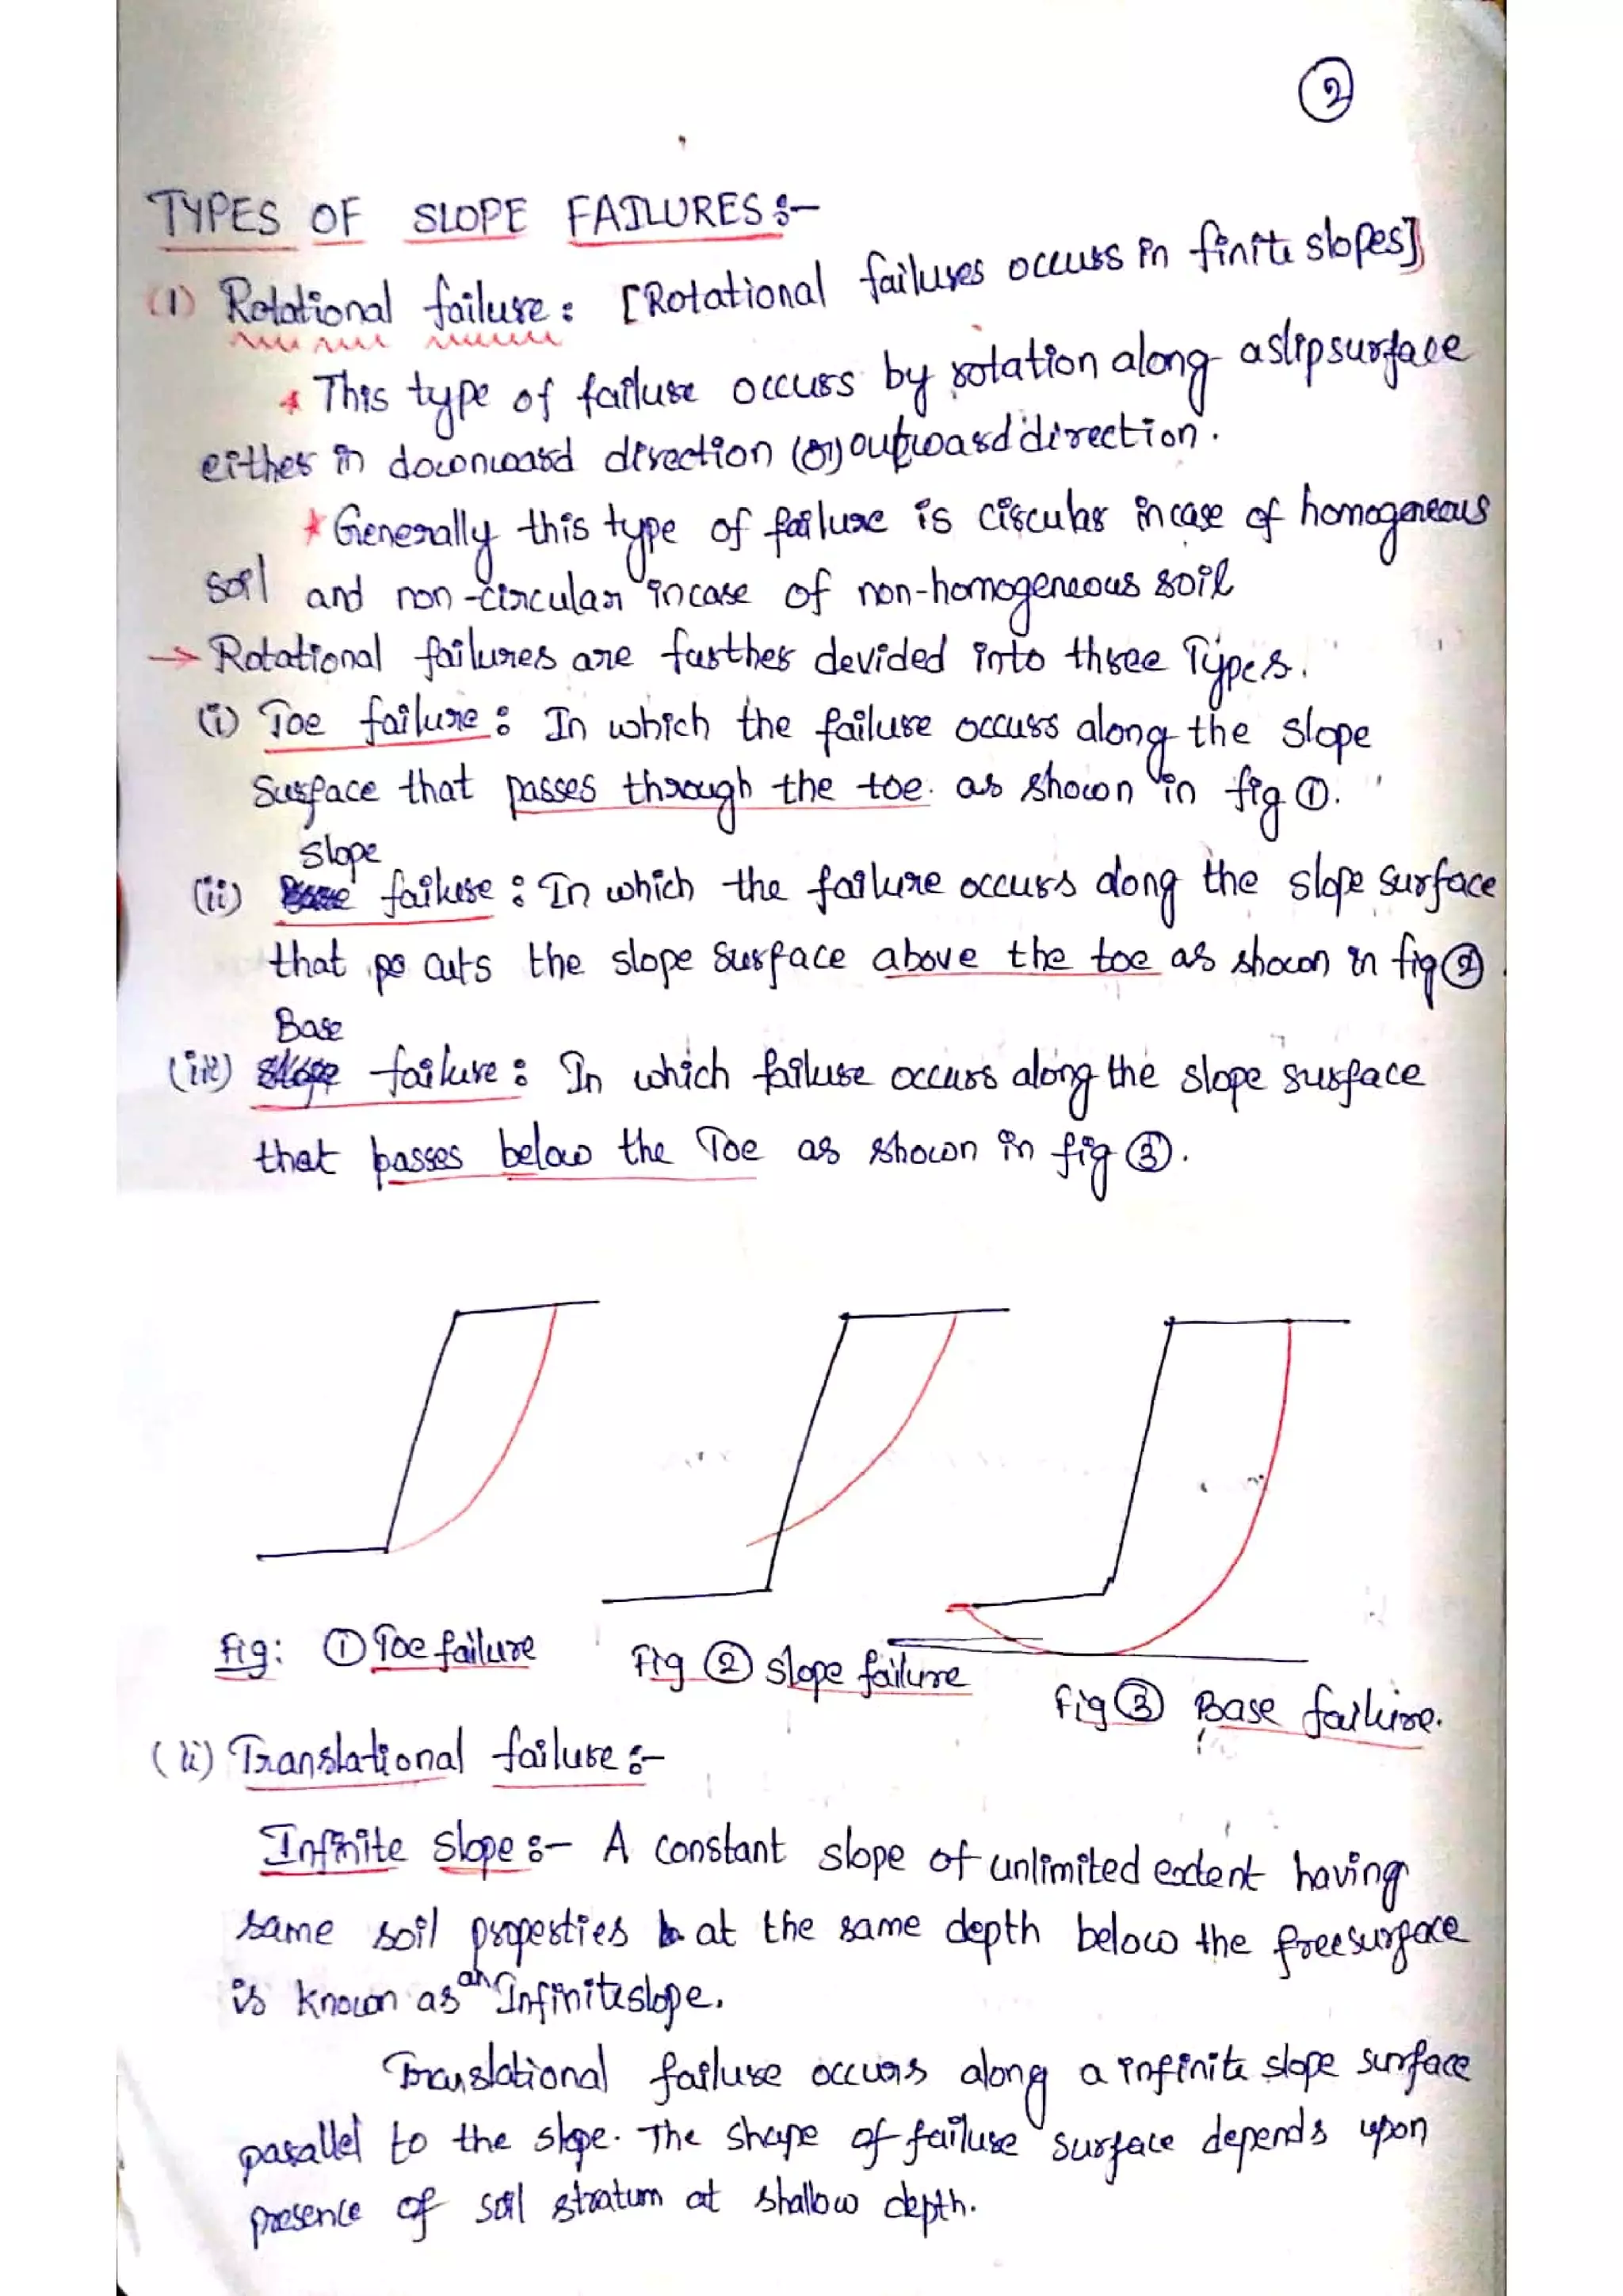 2
TYPES OF SLOPE FAILURES :-
(1) Rotational failure : [Rotational failures occurs in finite slopes]
* This type of failure occurs by rotation along a slip surface
either in downward direction (or) outward direction.
* Generally this type of failure is circular incase of homogeneous
soil and non-circular incase of non-homogeneous soil
→ Rotational failures are further devided into three Types.
(i) Toe failure : In which the failure occurs along the slope
Surface that passes through the toe. as shown in fig ①.
Slope
(ii) failure : In which the failure occurs along the slope surface
that cuts the slope surface above the toe as shown in fig ②.
Base
(iii) failure : In which failure occurs along the slope surface
that passes below the Toe as shown in fig ③.
fig: ① Toe failure
Fig ② slope failure
Fig ③ Base failure.
(ii) Translational failure :-
Infinite slope :- A constant slope of unlimited extent having
same soil properties at the same depth below the free surface
is known as an Infinite slope.
Translational failure occurs along a infinite slope surface
parallel to the slope. The shape of failure surface depends upon
presence of soil stratum at shallow depth.